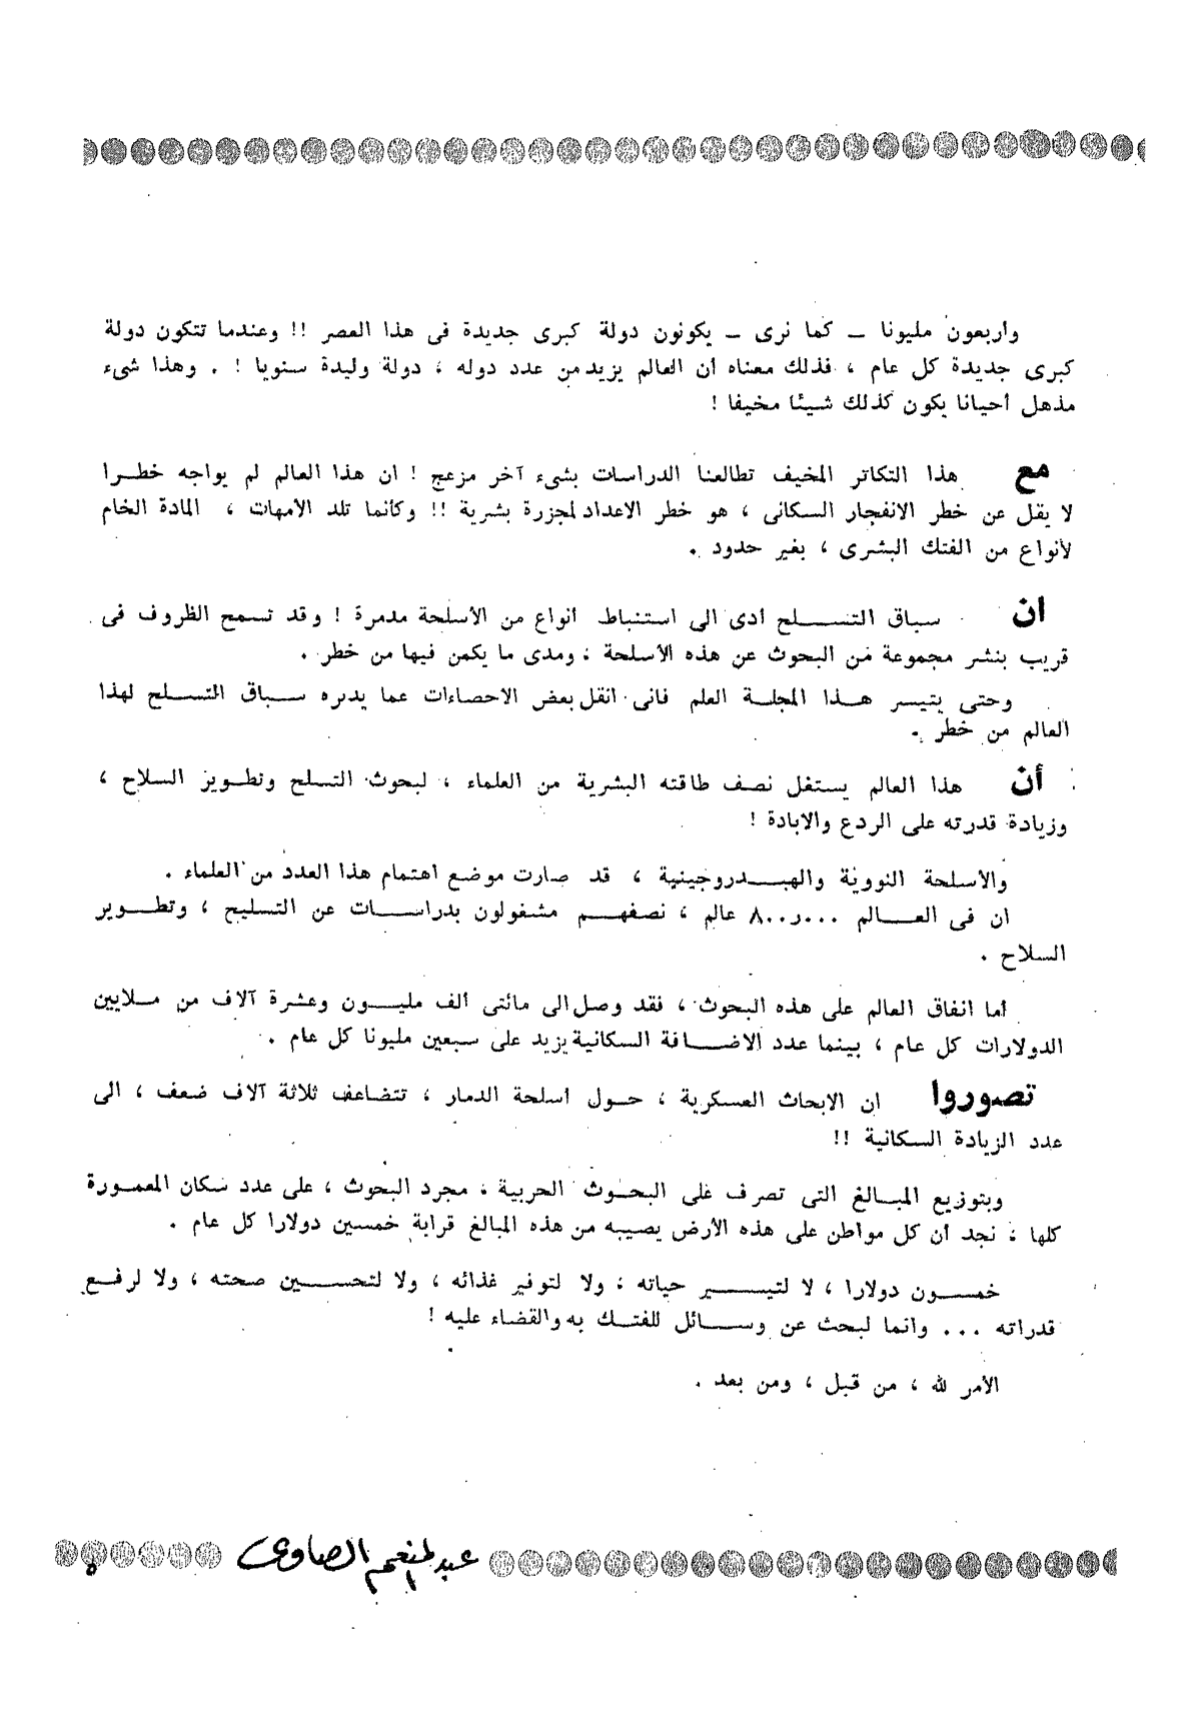 وأربعون مليونا ــ كما نرى ــ يكونون دولة كبرى جديدة فى هذا العصر !! وعندما تتكون دولة
كبرى جديدة كل عام ، فذلك معناه أن العالم يزيد من عدد دوله ، دولة وليدة سنويا ! . وهذا شىء
مذهل أحيانا يكون كذلك شيئا مخيفا !
مع هذا التكاثر المخيف تطالعنا الدراسات بشىء آخر مزعج ! ان هذا العالم لم يواجه خطرا
لا يقل عن خطر الانفجار السكانى ، هو خطر الاعداد لمجزرة بشرية !! وكأنما تلد الأمهات ، المادة الخام
لأنواع من الفتك البشرى ، بغير حدود .
ان سباق التسلح أدى الى استنباط أنواع من الأسلحة مدمرة ! وقد تسمح الظروف فى
قريب بنشر مجموعة من البحوث عن هذه الأسلحة ، ومدى ما يكمن فيها من خطر .
وحتى يتيسر هذا المجلة العلم فانى انقل بعض الاحصاءات عما يدبره سباق التسلح لهذا
العالم من خطر .
أن هذا العالم يستغل نصف طاقته البشرية من العلماء ، لبحوث التسلح وتطويز السلاح ،
وزيادة قدرته على الردع والابادة !
والأسلحة النووية والهيدروجينية ، قد صارت موضع اهتمام هذا العدد من العلماء .
ان فى العالم ٨٠٠ر٠٠٠ عالم ، نصفهم مشغولون بدراسات عن التسليح ، وتطوير
السلاح .
أما انفاق العالم على هذه البحوث ، فقد وصل الى مائتى ألف مليون وعشرة آلاف من ملايين
الدولارات كل عام ، بينما عدد الاضافة السكانية يزيد على سبعين مليونا كل عام .
تصوروا ان الابحاث العسكرية ، حول أسلحة الدمار ، تتضاعف ثلاثة آلاف ضعف ، الى
عدد الزيادة السكانية !!
وبتوزيع المبالغ التى تصرف على البحوث الحربية ، مجرد البحوث ، على عدد سكان المعمورة
كلها ، نجد أن كل مواطن على هذه الأرض يصيبه من هذه المبالغ قرابة خمسين دولارا كل عام .
خمسون دولارا ، لا لتيسير حياته ، ولا لتوفير غذائه ، ولا لتحسين صحته ، ولا لرفع
قدراته ... وانما لبحث عن وسائل للفتك به والقضاء عليه !
الأمر لله ، من قبل ، ومن بعد .
عبد المنعم الصاوى
٥